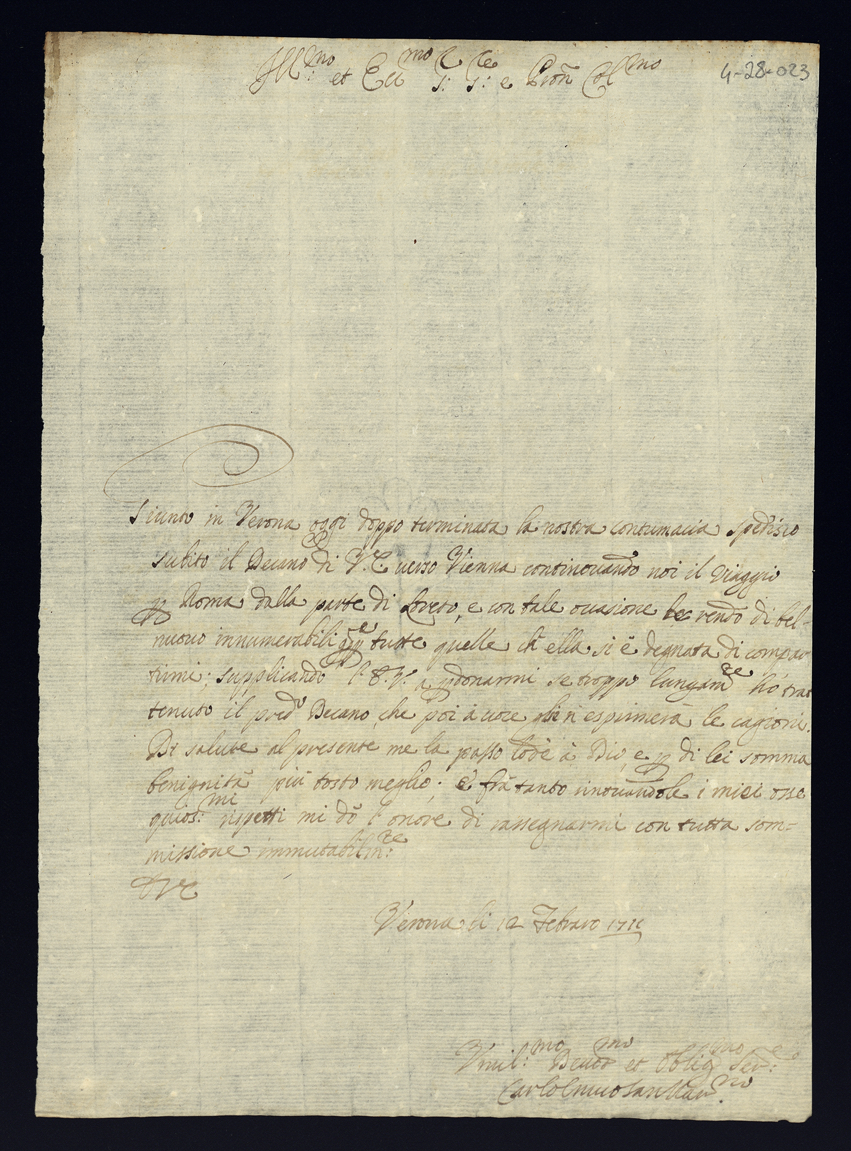 Ill:mo et Ecc:mo S: S:re e Pron Col:mo
4-28-023
Giunto in Verona oggi doppo terminata la nostra contumacia spedisco
subito il Decano di V.E. verso Vienna continovando noi il viaggio
p Roma dalla parte di Loreto, e con tale occasione le rendo di bel-
nuovo innumerabili gzie p tutte quelle ch' ella si è degnata di compar-
tirmi; supplicando l' E.V. a pdonarmi se troppo lungamte hò trat
tenuto il predo Decano, che poi à voce esprimerà le cagioni.
Di salute al presente me la passo lode à Dio, e p di lei somma
benignità più tosto meglio; e frà tanto rinovandole i miei osse
quios:mi rispetti mi dò l' onore di rassegnarmi con tutta som=
missione immutabilm:te
D V E
Verona li 12 Febraro 171
Umil:mo Devot:mo et Oblig:mo Ser:
Carlo